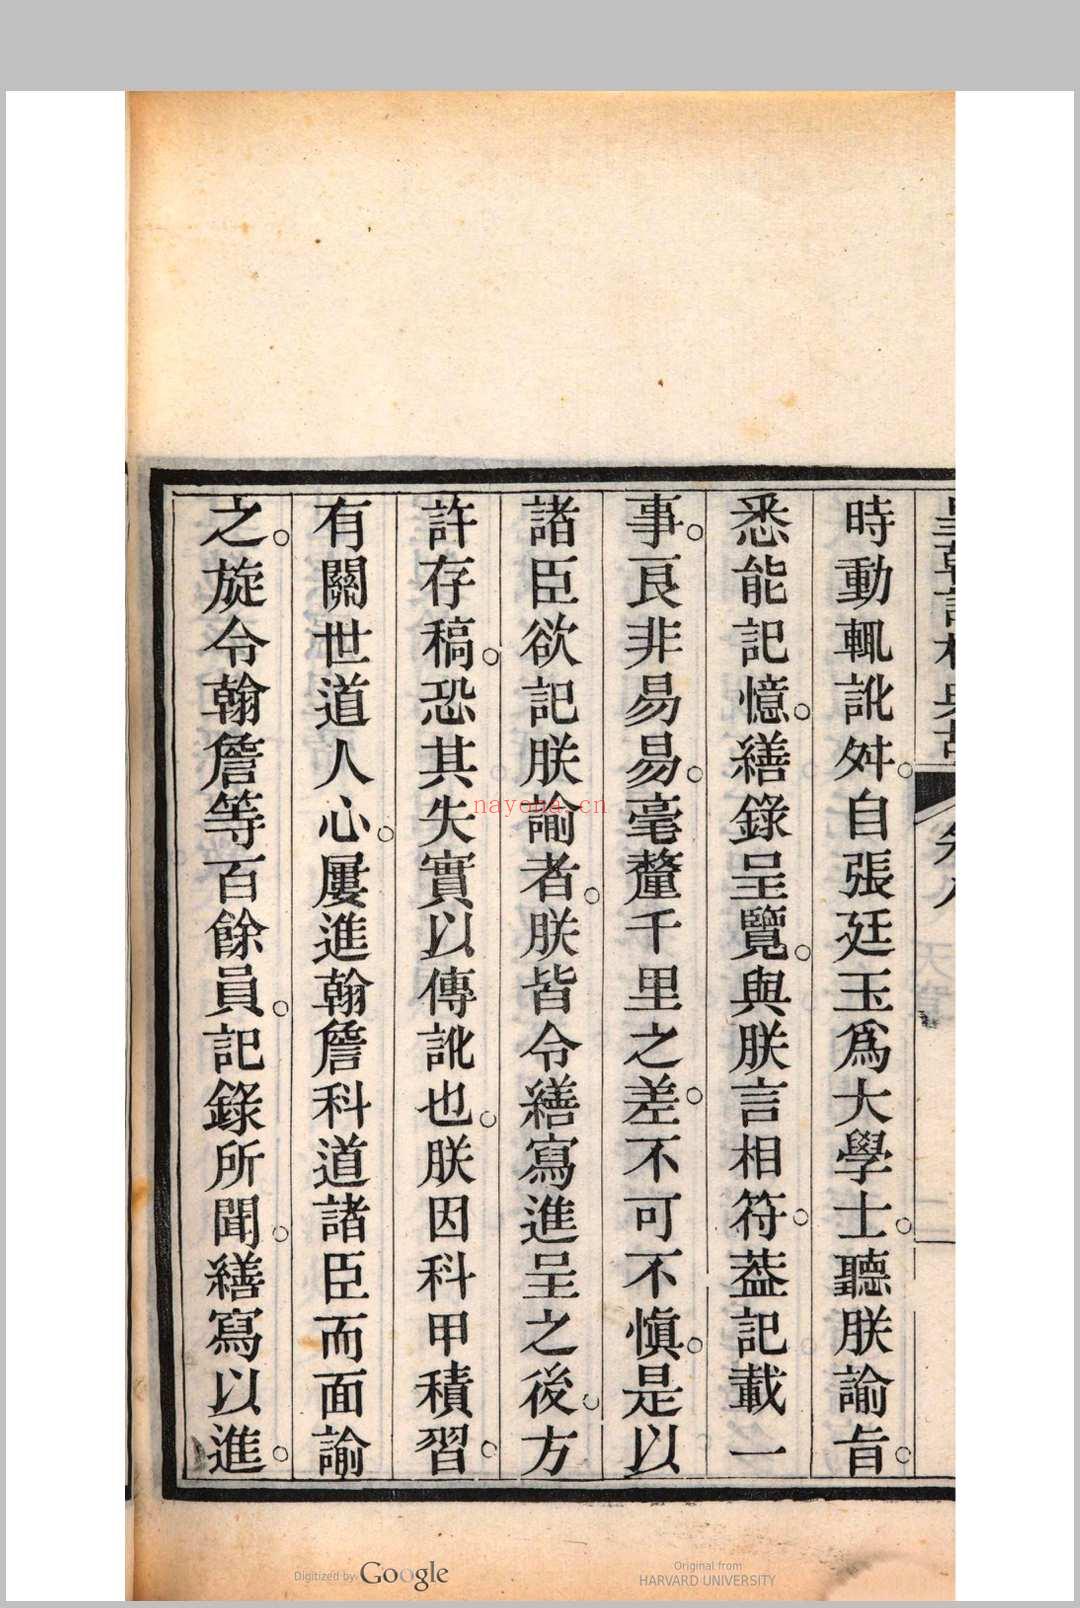 時動輒訛舛。自張廷玉爲大學士。聽朕諭旨。
悉能記憶。繕錄呈覽。與朕言相符。葢記載一
事。良非易易。毫釐千里之差。不可不愼。是以
諸臣欲記朕諭者。朕皆令繕寫進呈之後。方
許存稿。恐其失實以傳訛也。朕因科甲積習。
有關世道人心。屢進翰詹科道諸臣而面諭
之。旋令翰詹等百餘員。記錄所聞。繕寫以進。
nayona.cn
Digitized by Google
Original from
HARVARD UNIVERSITY